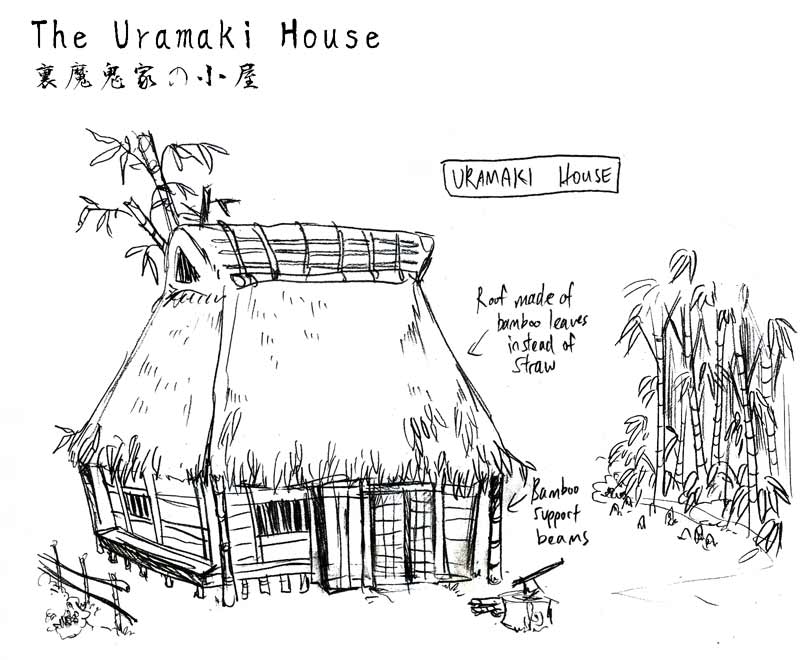 The Uramaki House
裏魔鬼家の小屋
URAMAKI HOUSE
Roof made of
bamboo leaves
instead of
straw
Bamboo
support
beams